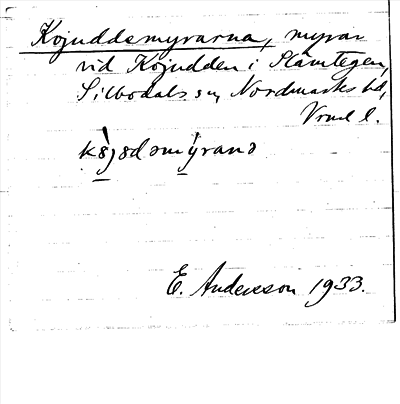 Kojuddsmyrarna, myrar
vid Kojudden i Slämtegen,
Silbodals sn, Nordmarks hd,
Vrml l.
E. Andersson 1933.